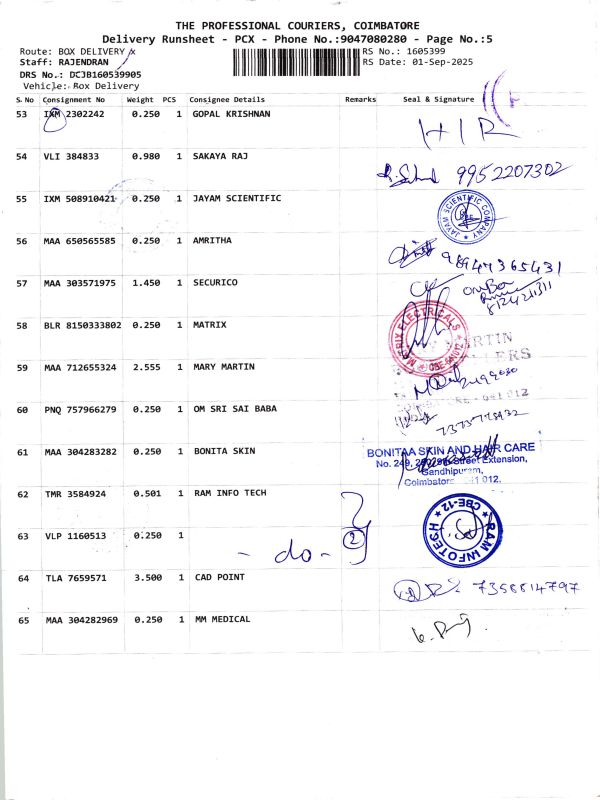 THE PROFESSIONAL COURIERS, COIMBATORE
Delivery Runsheet - PCX - Phone No.:9047080280 - Page No.:5
Route: BOX DELIVERY RS No.: 1605399
Staff: RAJENDRAN RS Date: 01-Sep-2025
DRS No.: DCJB160539905
Vehicle: Box Delivery
S.No Consignment No Weight PCS Consignee Details Remarks Seal & Signature
53 IXM 2302242 0.250 1 GOPAL KRISHNAN
HIR
54 VLI 384833 0.980 1 SAKAYA RAJ
9952207302
55 IXM 508910421 0.250 1 JAYAM SCIENTIFIC
JAYAM SCIENTIFIC COMPANY
56 MAA 650565585 0.250 1 AMRITHA
57 MAA 303571975 1.450 1 SECURICO
58 BLR 8150333802 0.250 1 MATRIX
MATRIX ELECTRICALS
59 MAA 712655324 2.555 1 MARY MARTIN
MARTIN
60 PNQ 757966279 0.250 1 OM SRI SAI BABA
61 MAA 304283282 0.250 1 BONITA SKIN
BONITAA SKIN AND HAIR CARE
Street Extension,
Gandhipuram,
62 TMR 3584924 0.501 1 RAM INFO TECH
RAM INFOTECH CBE-12
63 VLP 1160513 0.250 1
- do - 2
64 TLA 7659571 3.500 1 CAD POINT
7358814797
65 MAA 304282969 0.250 1 MM MEDICAL